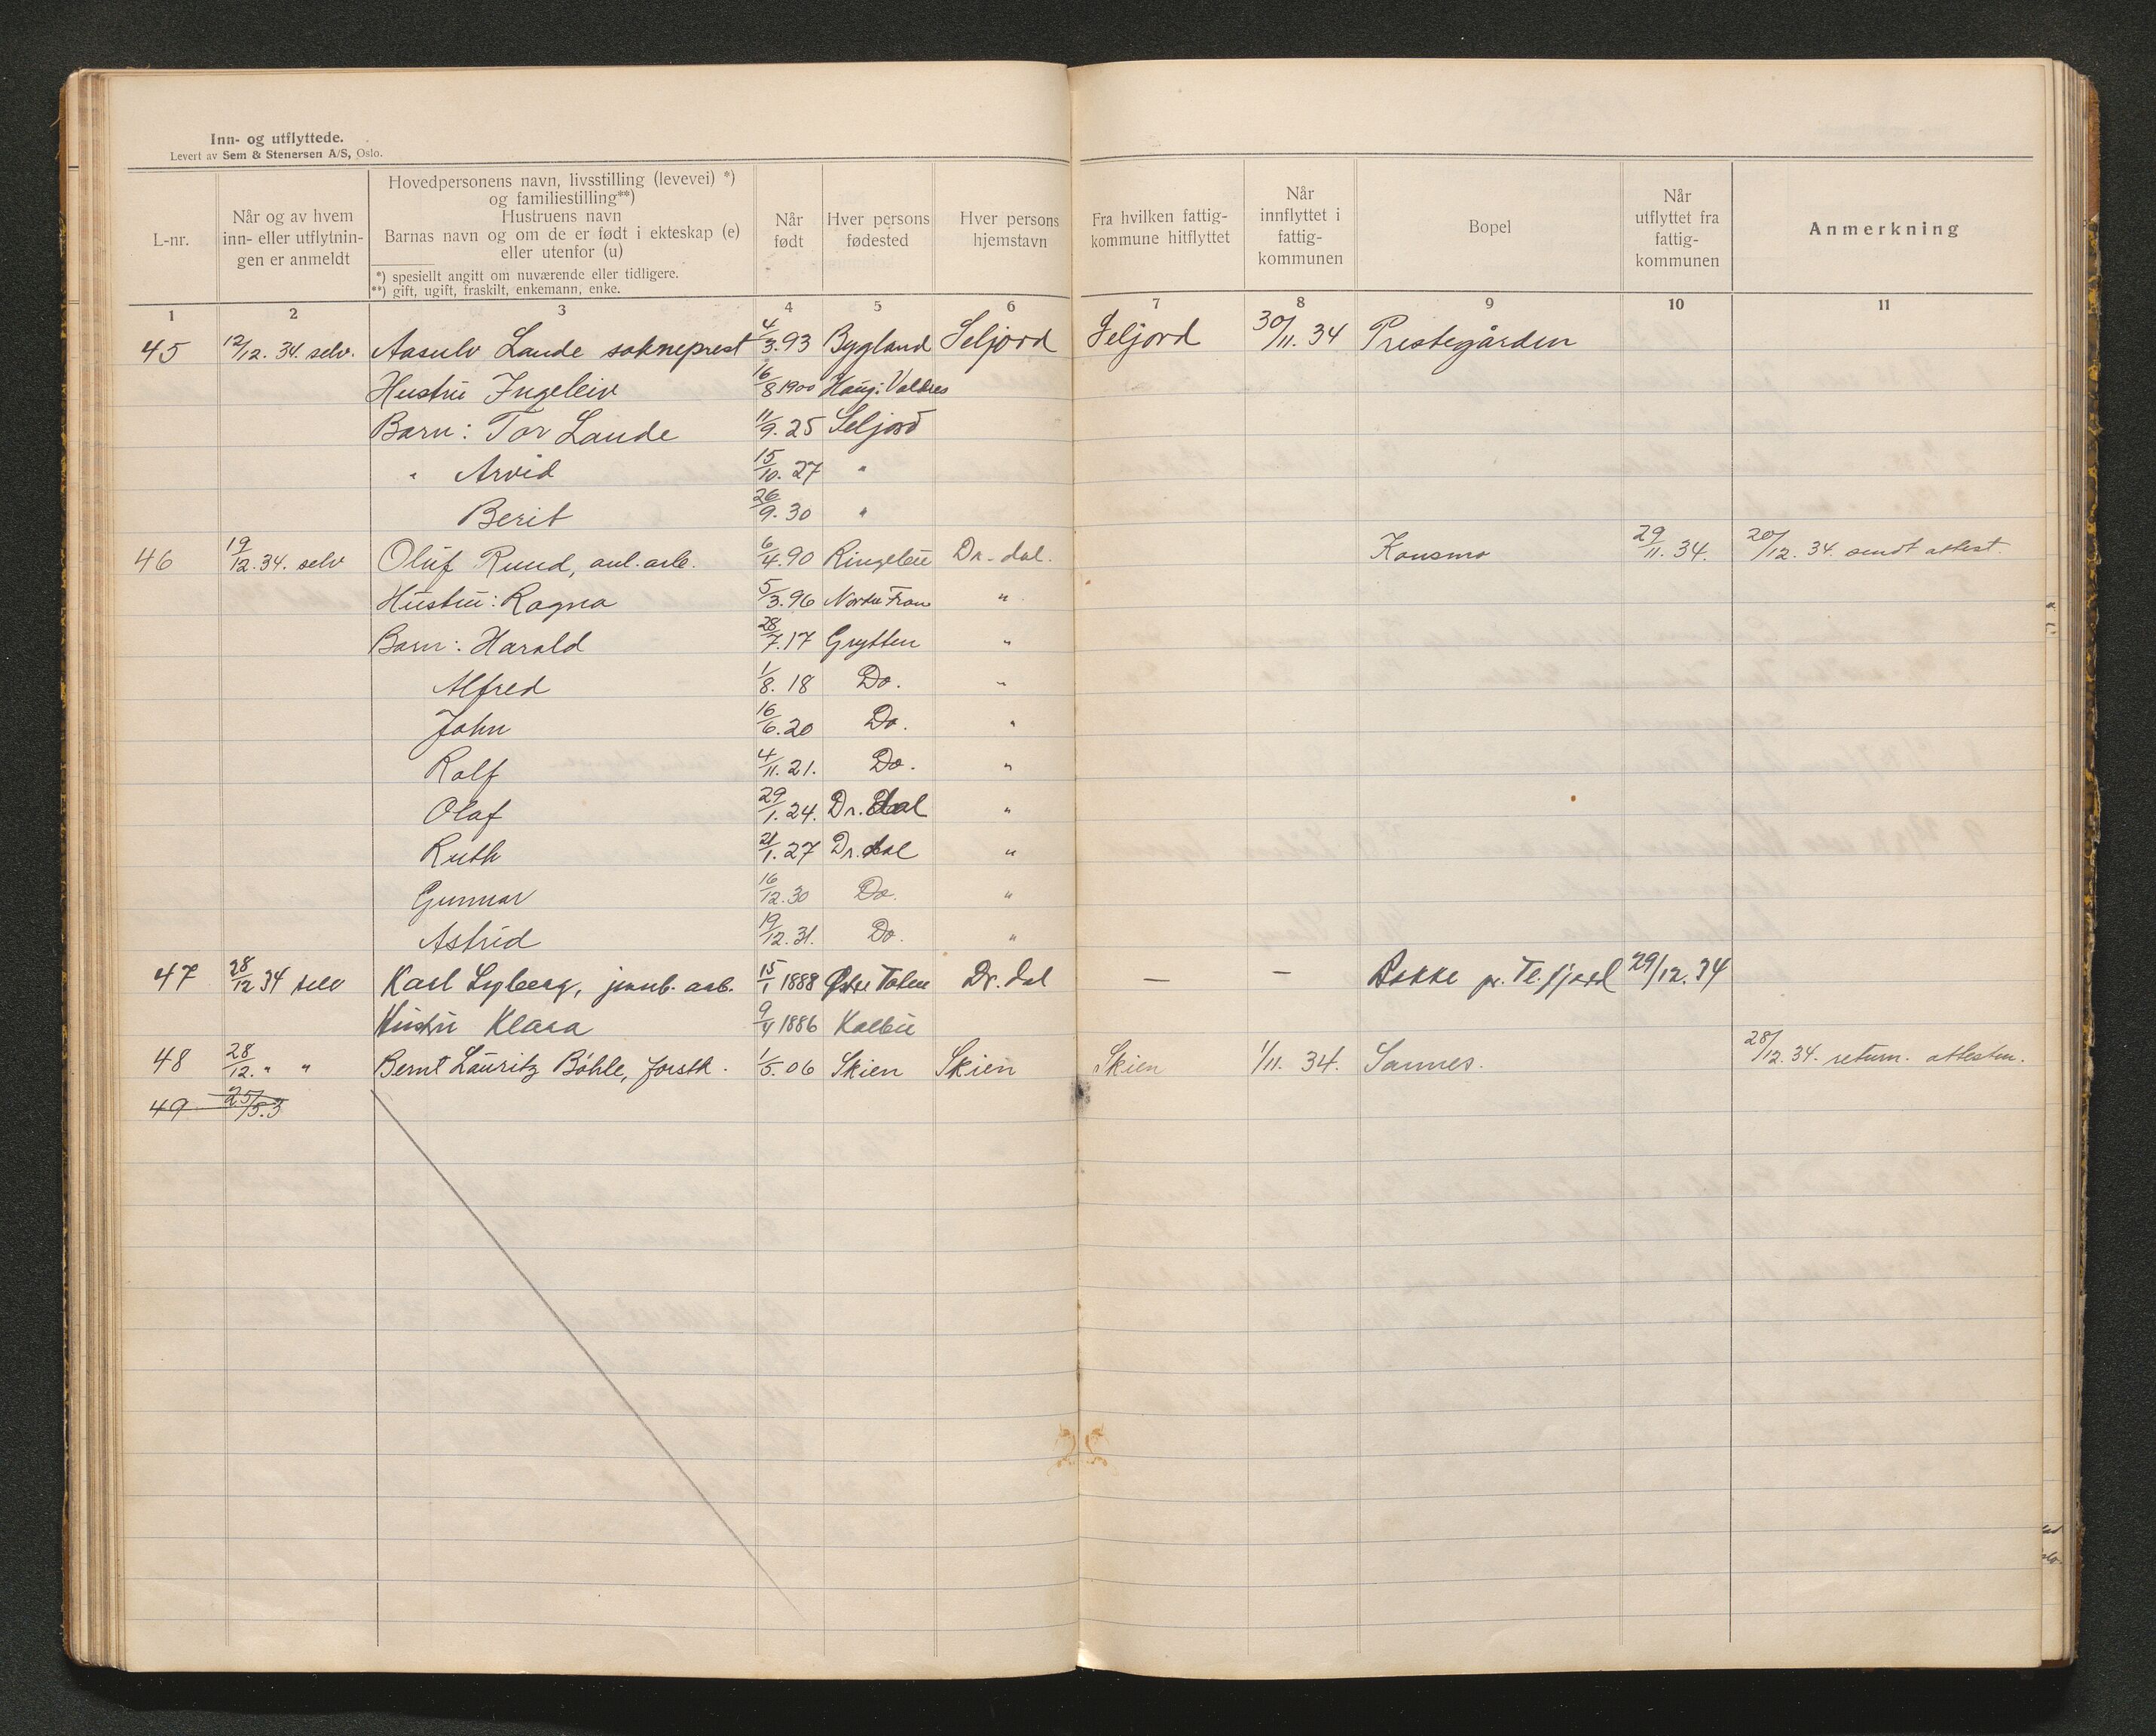 Inn- og utflyttede.
Levert av Sem & Stenersen A/S, Oslo.
L-nr.
Når og av hvem
inn- eller utflytnin-
gen er anmeldt
Hovedpersonens navn, livsstilling (levevei) *)
og familiestilling**)
Hustruens navn
Barnas navn og om de er født i ekteskap (e)
eller utenfor (u)
*) spesiellt angitt om nuværende eller tidligere.
**) gift, ugift, fraskilt, enkemann, enke.
Når
født
Hver persons
fødested
Hver persons
hjemstavn
Fra hvilken fattig-
kommune hitflyttet
Når
innflyttet i
fattig-
kommunen
Bopel
Når
utflyttet fra
fattig-
kommunen
Anmerkning
1 2 3 4 5 6 7 8 9 10 11
45 12/12. 34. selv. Aasulv Lande sokneprest 4/3.93 Bygland Seljord Seljord 30/11. 34 Prestegården
Hustru Ingeleiv 16/8 1900 Valdres
Barn: Tor Lande 11/9. 25 Seljord
" Arvid 15/10. 27 "
Berit 26/9. 30 "
46 19/12. 34. selv Oluf Ruud, anl. arb. 6/4.90 Ringebu Dr-dal. Konsmo 29/11. 34. 20/12. 34. sendt attest.
Hustru: Ragna 5/3.96 Nordre Fron "
Barn: Harald 28/7.17 Grytten "
Alfred 1/8. 18 Do. "
John 16/6.20 Do. "
Rolf 4/11. 21. Do. "
Olaf 29/1. 24. Dr. dal "
Ruth 21/1. 27 Dr. dal "
Gunnar 16/12. 30 Do. "
Astrid 19/12. 31. Do. "
47 28/12 34 selv Karl Lyberg, jernb. arb. 15/1 1888 Østre Toten Dr. dal — — Bakke pr. Fl.fjord 29/12. 34
Hustru Klara 9/4 1886 Kolbu
48 28/12. " " Bernt Lauritz Böhle, forstk. 1/5. 06 Skien Skien Skien 1/11. 34. Sannes. 28/12. 34. return. attesten.
49 25/5.3